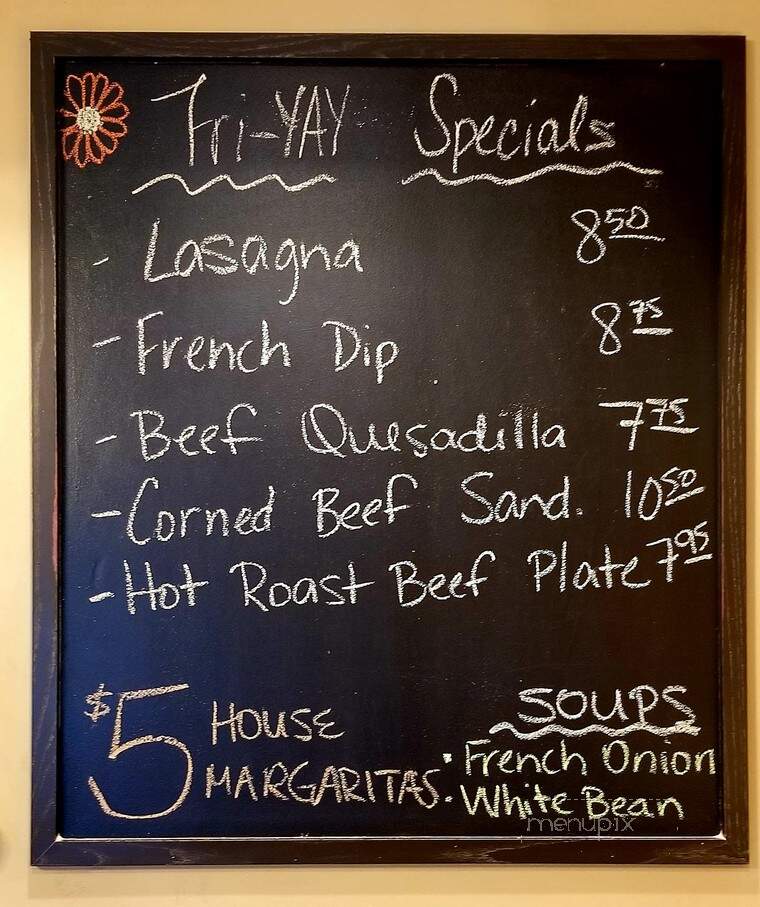 Fri-YAY Specials
- Lasagna 8 50
- French Dip 8 75
- Beef Quesadilla 7 75
- Corned Beef Sand. 10 50
- Hot Roast Beef Plate 7 95
$5 HOUSE MARGARITAS
SOUPS
· French Onion
· White Bean
menupix